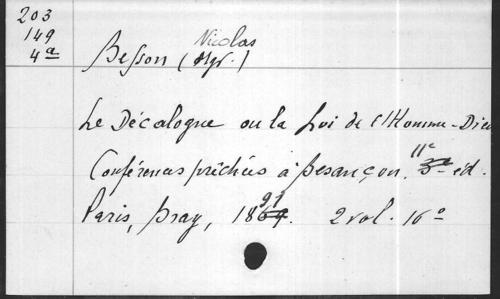 203
149
4a
Nicolas
Besson (Mgr.)
Le Décalogue ou la Loi de l'Homme-Dieu
Conférences prêchées à Besançon. 11e 3e éd.
Paris, Bray, 1864. 91 2 vol. 16°